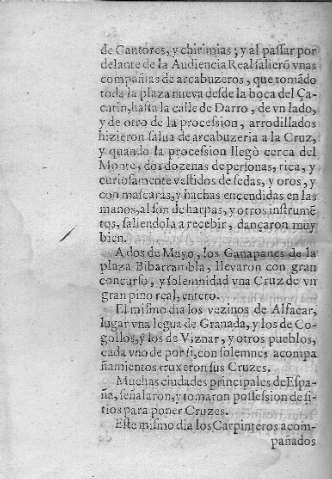 de Cantores, y chirimias; y al passar por
delante de la Audiencia Real salierõ vnas
compañias de arcabuzeros, que tomãdo
toda la plaza nueva desde la boca del Ça-
catin, hasta la calle de Darro, de vn lado,
y de otro de la procession, arrodillados
hizieron salua de arcabuzeria a la Cruz,
y quando la procession llegò cerca del
Monte, dos dozenas de personas, rica, y
curiosamente vestidos de sedas, y oros, y
con mascaras, y hachas encendidas en las
manos, al son de harpas, y otros instrumẽ
tos, saliendola a recebir, dançaron muy
bien.
A dos de Mayo, los Ganapanes de la
plaza Bibarrambla, llevaron con gran
concurso, y solemnidad vna Cruz de vn
gran pino real, entero.
El mismo dia los vezinos de Alfacar,
lugar vna legua de Granada, y los de Co-
gollos, y los de Viznar, y otros pueblos,
cada vno de por si, con solemnes acompa
ñamientos truxeron sus Cruzes.
Muchas ciudades principales de Espa-
ña, señalaron, y tomaron possession de si-
tios para poner Cruzes.
Este mismo dia los Carpinteros acom-
pañados